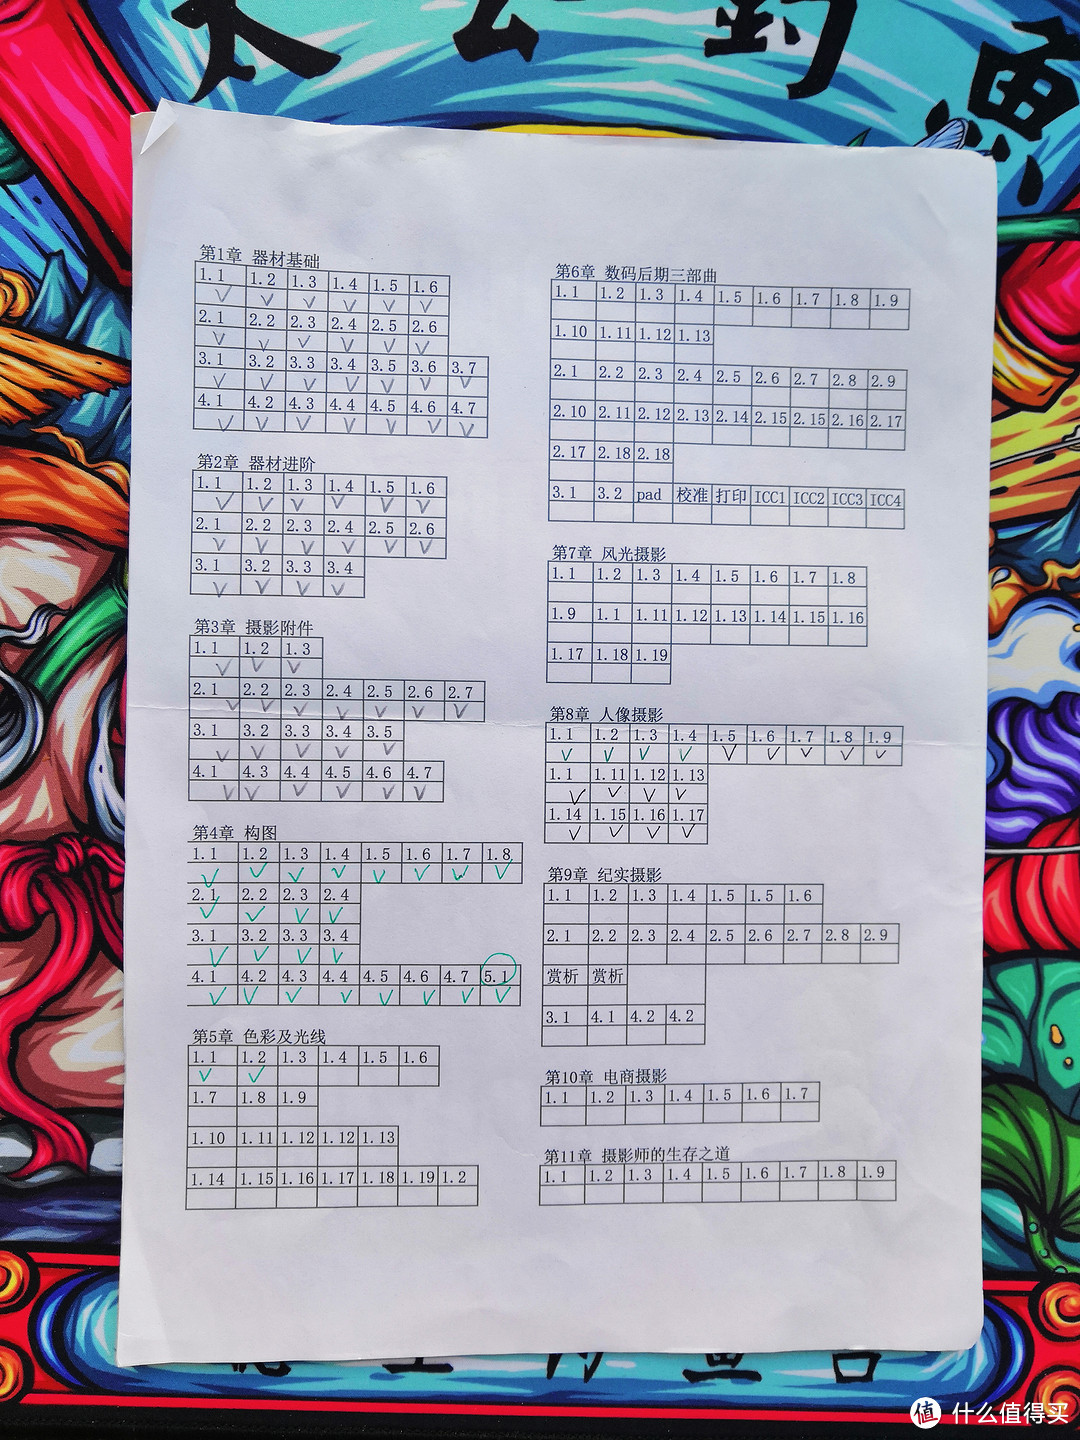 太公钓
鱼
第1章 器材基础
1.1 1.2 1.3 1.4 1.5 1.6
✓ ✓ ✓ ✓ ✓ ✓
2.1 2.2 2.3 2.4 2.5 2.6
✓ ✓ ✓ ✓ ✓ ✓
3.1 3.2 3.3 3.4 3.5 3.6 3.7
✓ ✓ ✓ ✓ ✓ ✓ ✓
4.1 4.2 4.3 4.4 4.5 4.6 4.7
✓ ✓ ✓ ✓ ✓ ✓ ✓
第2章 器材进阶
1.1 1.2 1.3 1.4 1.5 1.6
✓ ✓ ✓ ✓ ✓ ✓
2.1 2.2 2.3 2.4 2.5 2.6
✓ ✓ ✓ ✓ ✓ ✓
3.1 3.2 3.3 3.4
✓ ✓ ✓ ✓
第3章 摄影附件
1.1 1.2 1.3
✓ ✓ ✓
2.1 2.2 2.3 2.4 2.5 2.6 2.7
✓ ✓ ✓ ✓ ✓ ✓ ✓
3.1 3.2 3.3 3.4 3.5
✓ ✓ ✓ ✓ ✓
4.1 4.3 4.4 4.5 4.6 4.7
✓ ✓ ✓ ✓ ✓ ✓
第4章 构图
1.1 1.2 1.3 1.4 1.5 1.6 1.7 1.8
✓ ✓ ✓ ✓ ✓ ✓ ✓ ✓
2.1 2.2 2.3 2.4
✓ ✓ ✓ ✓
3.1 3.2 3.3 3.4
✓ ✓ ✓ ✓
4.1 4.2 4.3 4.4 4.5 4.6 4.7 5.1
✓ ✓ ✓ ✓ ✓ ✓ ✓ ✓
第5章 色彩及光线
1.1 1.2 1.3 1.4 1.5 1.6
✓ ✓
1.7 1.8 1.9
1.10 1.11 1.12 1.12 1.13
1.14 1.15 1.16 1.17 1.18 1.19 1.2
第6章 数码后期三部曲
1.1 1.2 1.3 1.4 1.5 1.6 1.7 1.8 1.9
1.10 1.11 1.12 1.13
2.1 2.2 2.3 2.4 2.5 2.6 2.7 2.8 2.9
2.10 2.11 2.12 2.13 2.14 2.15 2.15 2.16 2.17
2.17 2.18 2.18
3.1 3.2 pad 校准 打印 ICC1 ICC2 ICC3 ICC4
第7章 风光摄影
1.1 1.2 1.3 1.4 1.5 1.6 1.7 1.8
1.9 1.1 1.11 1.12 1.13 1.14 1.15 1.16
1.17 1.18 1.19
第8章 人像摄影
1.1 1.2 1.3 1.4 1.5 1.6 1.7 1.8 1.9
✓ ✓ ✓ ✓ ✓ ✓ ✓ ✓ ✓
1.1 1.11 1.12 1.13
✓ ✓ ✓ ✓
1.14 1.15 1.16 1.17
✓ ✓ ✓ ✓
第9章 纪实摄影
1.1 1.2 1.3 1.4 1.5 1.5 1.6
2.1 2.2 2.3 2.4 2.5 2.6 2.7 2.8 2.9
赏析 赏析
3.1 4.1 4.2 4.2
第10章 电商摄影
1.1 1.2 1.3 1.4 1.5 1.6 1.7
第11章 摄影师的生存之道
1.1 1.2 1.3 1.4 1.5 1.6 1.7 1.8 1.9
值 什么值得买